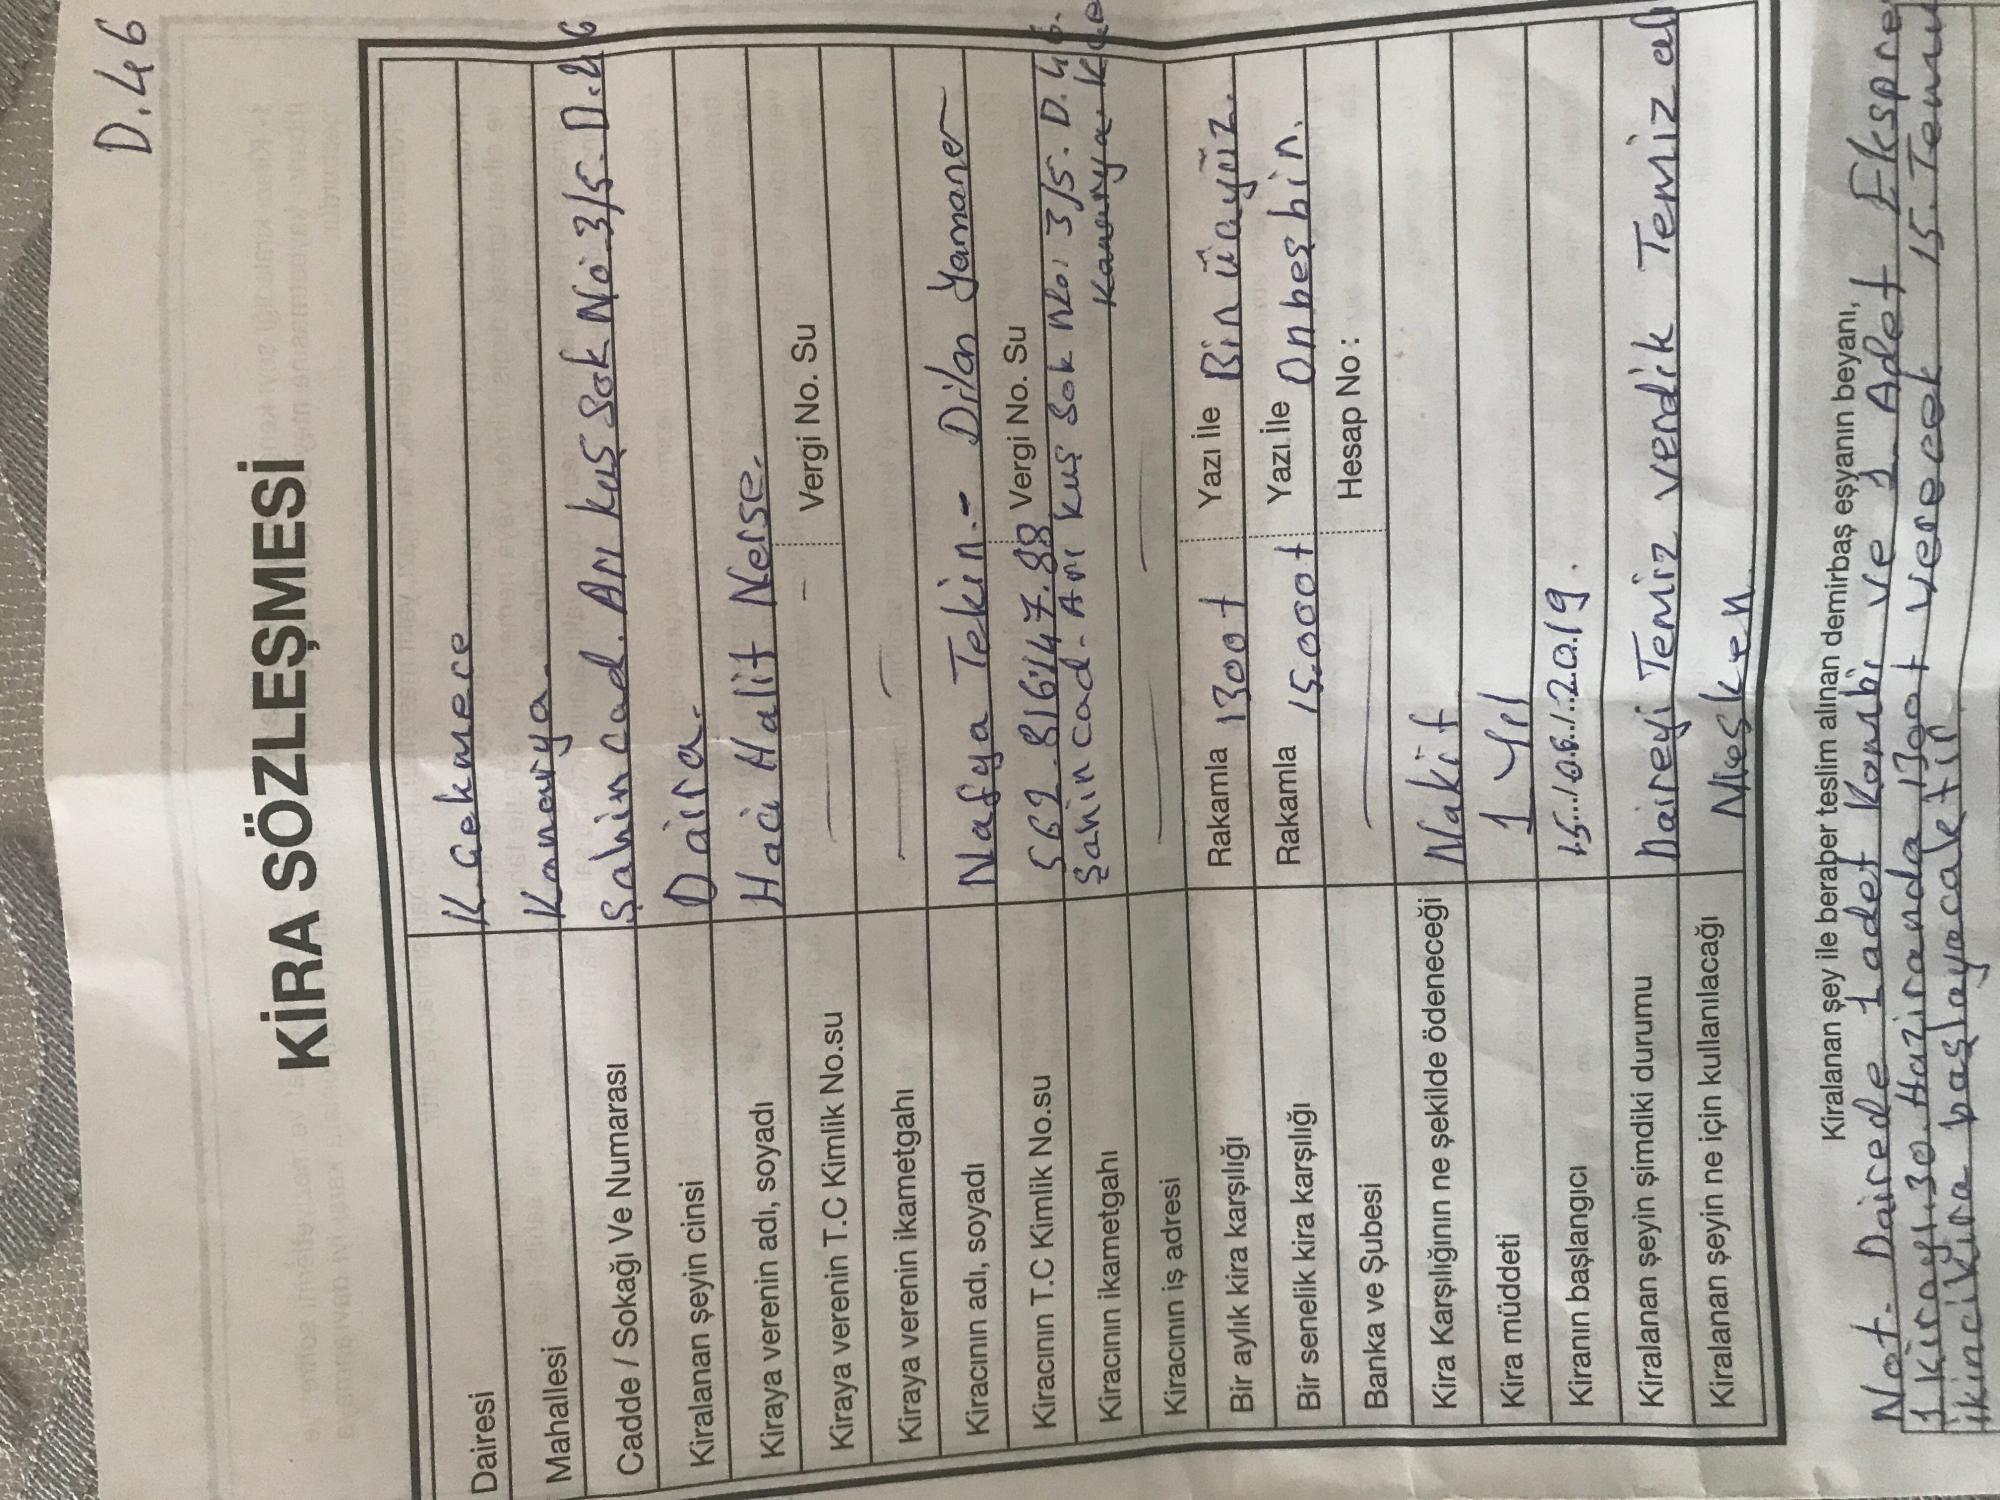 D.46
KİRA SÖZLEŞMESİ
Dairesi K.çekmece
Mahallesi Kanarya.
Cadde / Sokağı Ve Numarası Şahin cad. Arı kuş Sok No: 3/5. D.26
Kiralanan şeyin cinsi Daire.
Kiraya verenin adı, soyadı Hacı Halit Nerse.
Kiraya verenin T.C Kimlik No.su — Vergi No. Su —
Kiraya verenin ikametgahı —
Kiracının adı, soyadı Nafya Tekin.- Dilan Yamaner
Kiracının T.C Kimlik No.su Vergi No. Su
Kiracının ikametgahı Şahin cad- Arı kuş Sok No: 3/5. D.46.
Kanarya K
Kiracının iş adresi —
Bir aylık kira karşılığı Rakamla 1300t Yazı İle Bin üçyüz.
Bir senelik kira karşılığı Rakamla 15.000t Yazı İle Onbeşbin.
Banka ve Şubesi — Hesap No :
Kira Karşılığının ne şekilde ödeneceği Nakit
Kira müddeti 1 Yıl
Kiranın başlangıcı 15../06/.2019.
Kiralanan şeyin şimdiki durumu Daireyi Temiz verdik Temiz al
Kiralanan şeyin ne için kullanılacağı Mesken.
Kiralanan şey ile beraber teslim alınan demirbaş eşyanın beyanı,
Not- Dairede 1 adet Kombi ve 1. Adet Ekspre
1 Kirayı.30.Haziranda 1300t verecek 15.Temmu
ikinci kira başlayacaktır.